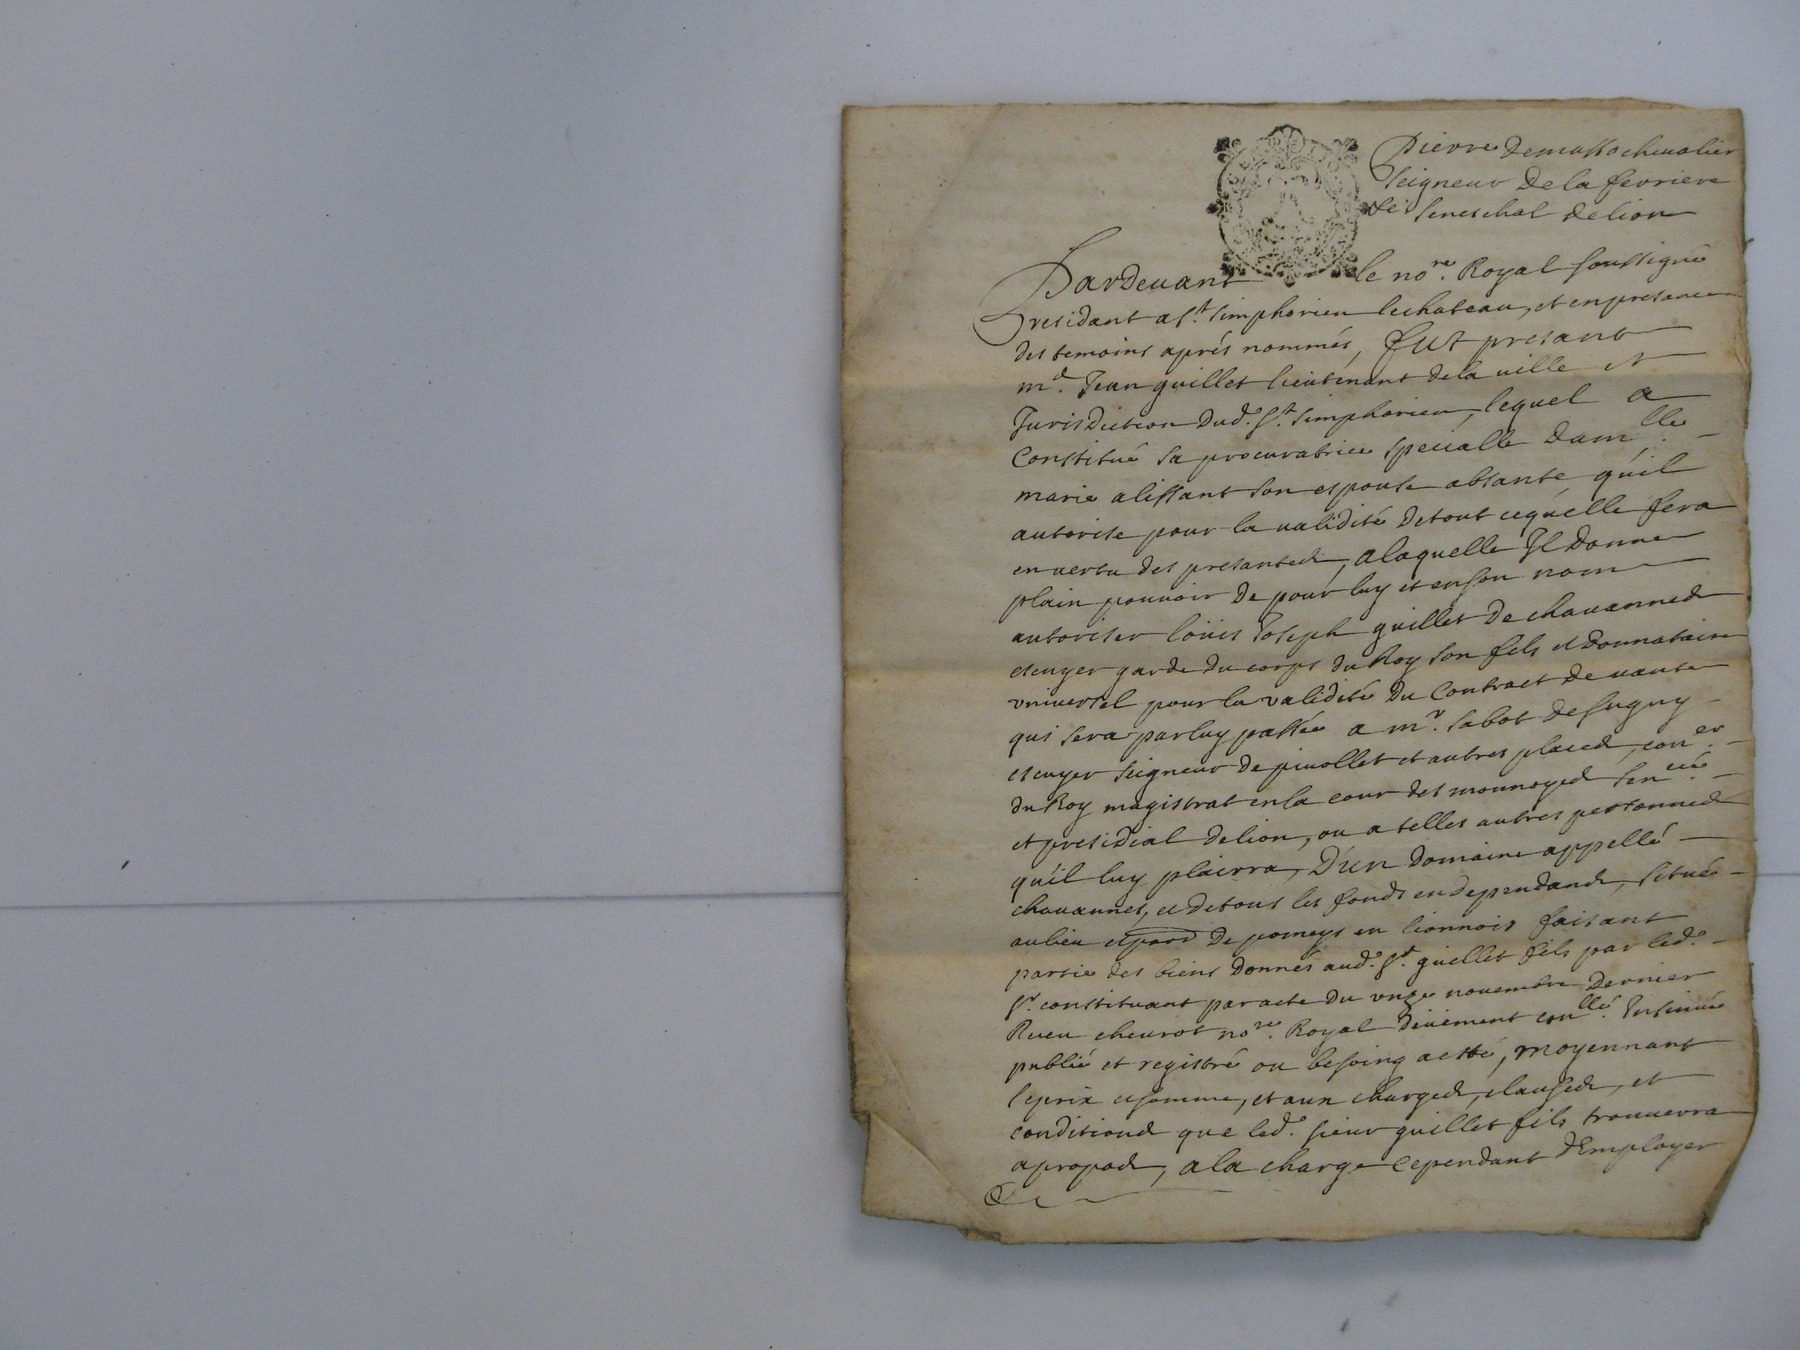 Pierre demasso chevalier
seigneur de la ferriere
seneschal de lion
Pardevant le no.re Royal soussigné
residant a st. simphorien le chateau, et en presance
des temoins aprés nommés, fut presant
m.e Jean guillet lieutenant de la ville et
Jurisdiction dud. st. simphorien, lequel a
Constitué sa procuratrice specialle dam.lle
marie alissant son espouse absante qu'il
autorise pour la validité de tout ce qu'elle fera
en vertu des presantes, a laquelle Il donne
plain pouvoir de pour luy et en son nom
autoriser loüis Joseph guillet de chavannes
escuyer garde du corps du Roy son fils et donnataire
universel pour la validité du Contract de vante
qui sera par luy passée a m.r sabot de sugny
escuyer seigneur de pivollet et autres places, con.er
du Roy magistrat en la cour des monnoyes sen.cée
et presidial de lion, ou a telles autres personnes
qu'il luy plairra, D'un Domaine appellé
chavannes, et de tous les fonds en dependands, situés
au lieu et parr. de pomeys en lionnois faisant
partie des biens donnés aud. sr. guillet fils par led.
sr. constituant par acte du unze novembre dernier
Receu chevrot no.re Royal düement con.llé Insinué
publié et registré ou besoing a esté, moyennant
le prix et somme, et aux charges, clauses, et
conditions que led. sieur guillet fils trouverra
a propos, a la charge cependant d'Employer